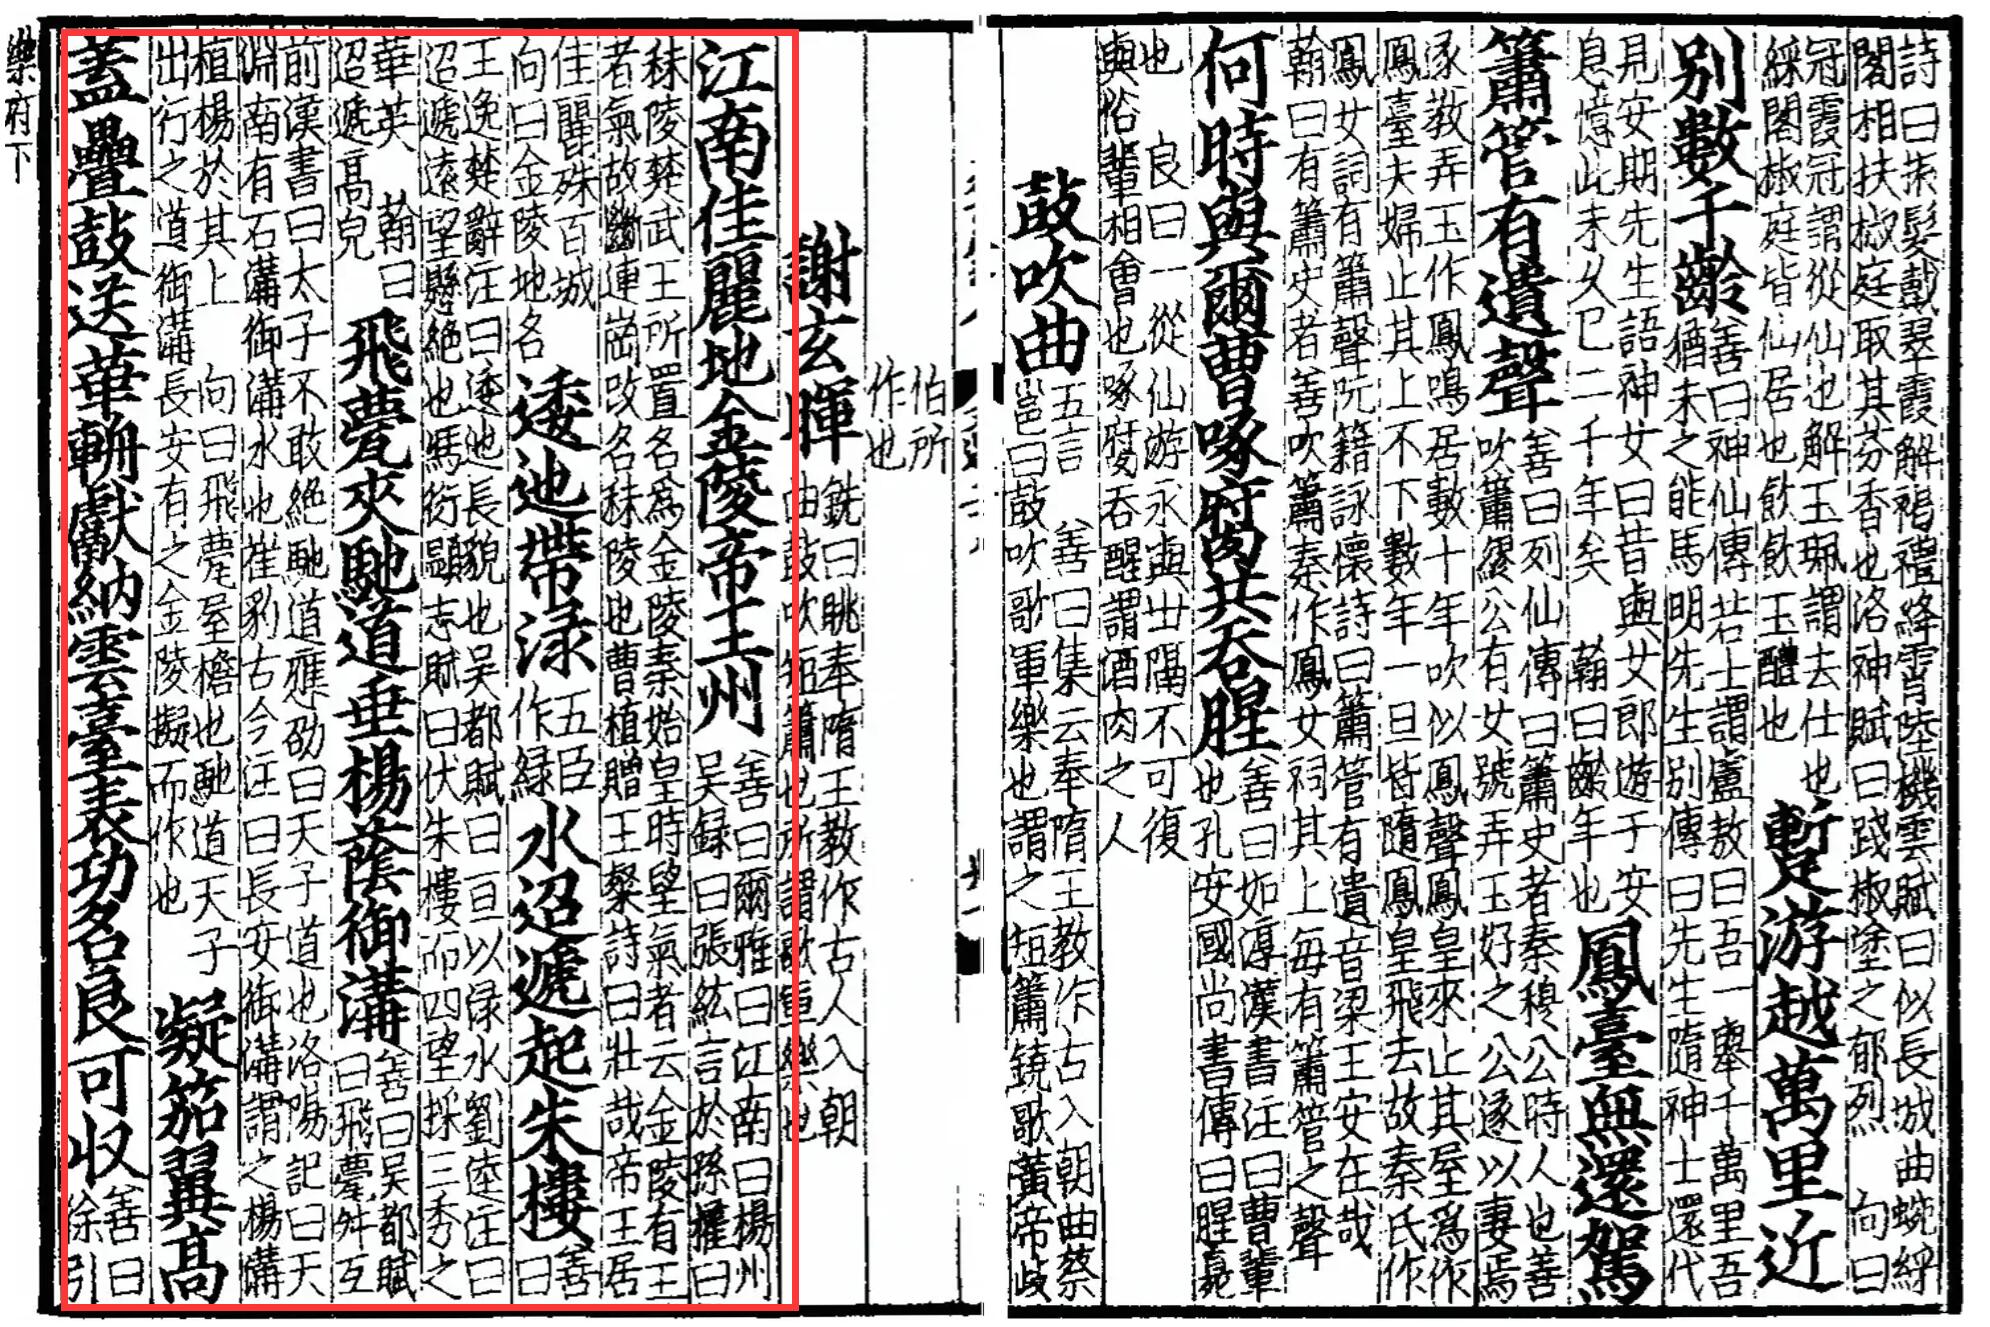 詩曰振髮戴翠霞解褐禮絳霄陸機雲賦曰似長城曲蜿綵
閣相扶椒庭取其芬香也洛神賦曰踐椒塗之郁烈 向曰
冠霞冠謂從仙也解玉珮謂去仕也
綵閣椒庭皆仙居也飲飲玉醴也
暫游越萬里近
別數千齡
善曰神仙傳若士謂盧敖曰吾一舉千萬里吾
猶未之能馬明先生別傳曰先生隨神士還代
見安期先生語神女曰昔與女郎遊于安
息憶此未久已二千年矣 翰曰齡年也
鳳臺無還駕
簫管有遺聲
善曰列仙傳曰簫史者秦穆公時人也善
吹簫繆公有女號弄玉好之公遂以妻焉
遂教弄玉作鳳鳴居數十年吹似鳳聲鳳皇來止其屋爲作
鳳臺夫婦止其上不下數年一旦皆隨鳳皇飛去故秦氏作
鳳女詞有簫聲阮籍詠懷詩曰簫管有遺音梁王安在哉
翰曰有簫史者善吹簫秦作鳳女祠其上每有簫管之聲
何時與爾曹啄腐共吞腥
善曰如淳漢書注曰曹輩
也孔安國尚書傳曰腥臭
也 良曰一從仙游永與世隔不可復
與俗輩相會也啄腐吞腥謂酒肉之人
鼓吹曲
五言 善曰集云奉隋王教作古入朝曲蔡
邕曰鼓吹歌軍樂也謂之短簫鐃歌黃帝歧
伯所
作也
謝玄暉
銑曰眺奉隋王教作古人入朝
曲鼓吹短簫也所謂歌軍樂也
江南佳麗地金陵帝王州
善曰爾雅曰江南曰楊州
吴録曰張紘言於孫權曰
秣陵楚武王所置名爲金陵秦始皇時望氣者云金陵有王
者氣故斷連崗改名秣陵也曹植贈王粲詩曰壯哉帝王居
佳麗殊百城
向曰金陵地名
逶迆帶渌
五臣
作緑
水迢遞起朱樓
善
曰
王逸楚辭注曰逶迆長貌也吴都賦曰亘以渌水劉逵注曰
迢遞遠望懸絶也馮衍顯志賦曰伏朱樓而四望採三秀之
華英 翰曰
迢遞高皃
飛甍夾馳道垂楊蔭御溝
善曰吴都賦
曰飛甍舛互
前漢書曰太子不敢絶馳道應劭曰天子道也洛陽記曰天
淵南有石溝御溝水也崔豹古今注曰長安御溝謂之楊溝
植楊於其上 向曰飛甍屋檐也馳道天子
出行之道御溝長安有之金陵擬而作也
凝笳翼高
蓋疊鼓送華輈獻納雲臺表功名良可収
善曰
徐引
樂府下